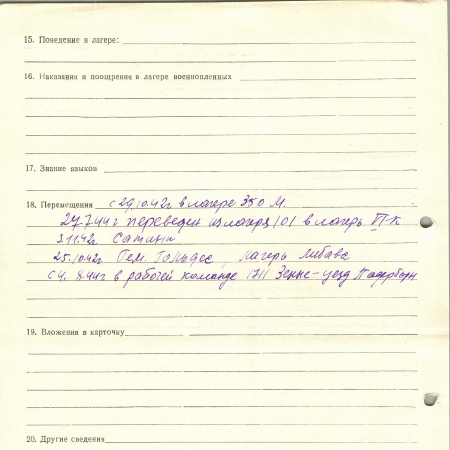 15. Поведение в лагере:
16. Наказания и поощрения в лагере военнопленных
17. Знание языков
18. Перемещения с 29.10.42г в лагере 350 М.
27.7.44г переведен из лагеря 101 в лагерь VI-К
3.11.42г.
25.10.42г Гем. , лагерь Либава
с 4. 8.44г в рабочей команде 1711 Зенне-уезд Падерборн
19. Вложения в карточку
20. Другие сведения